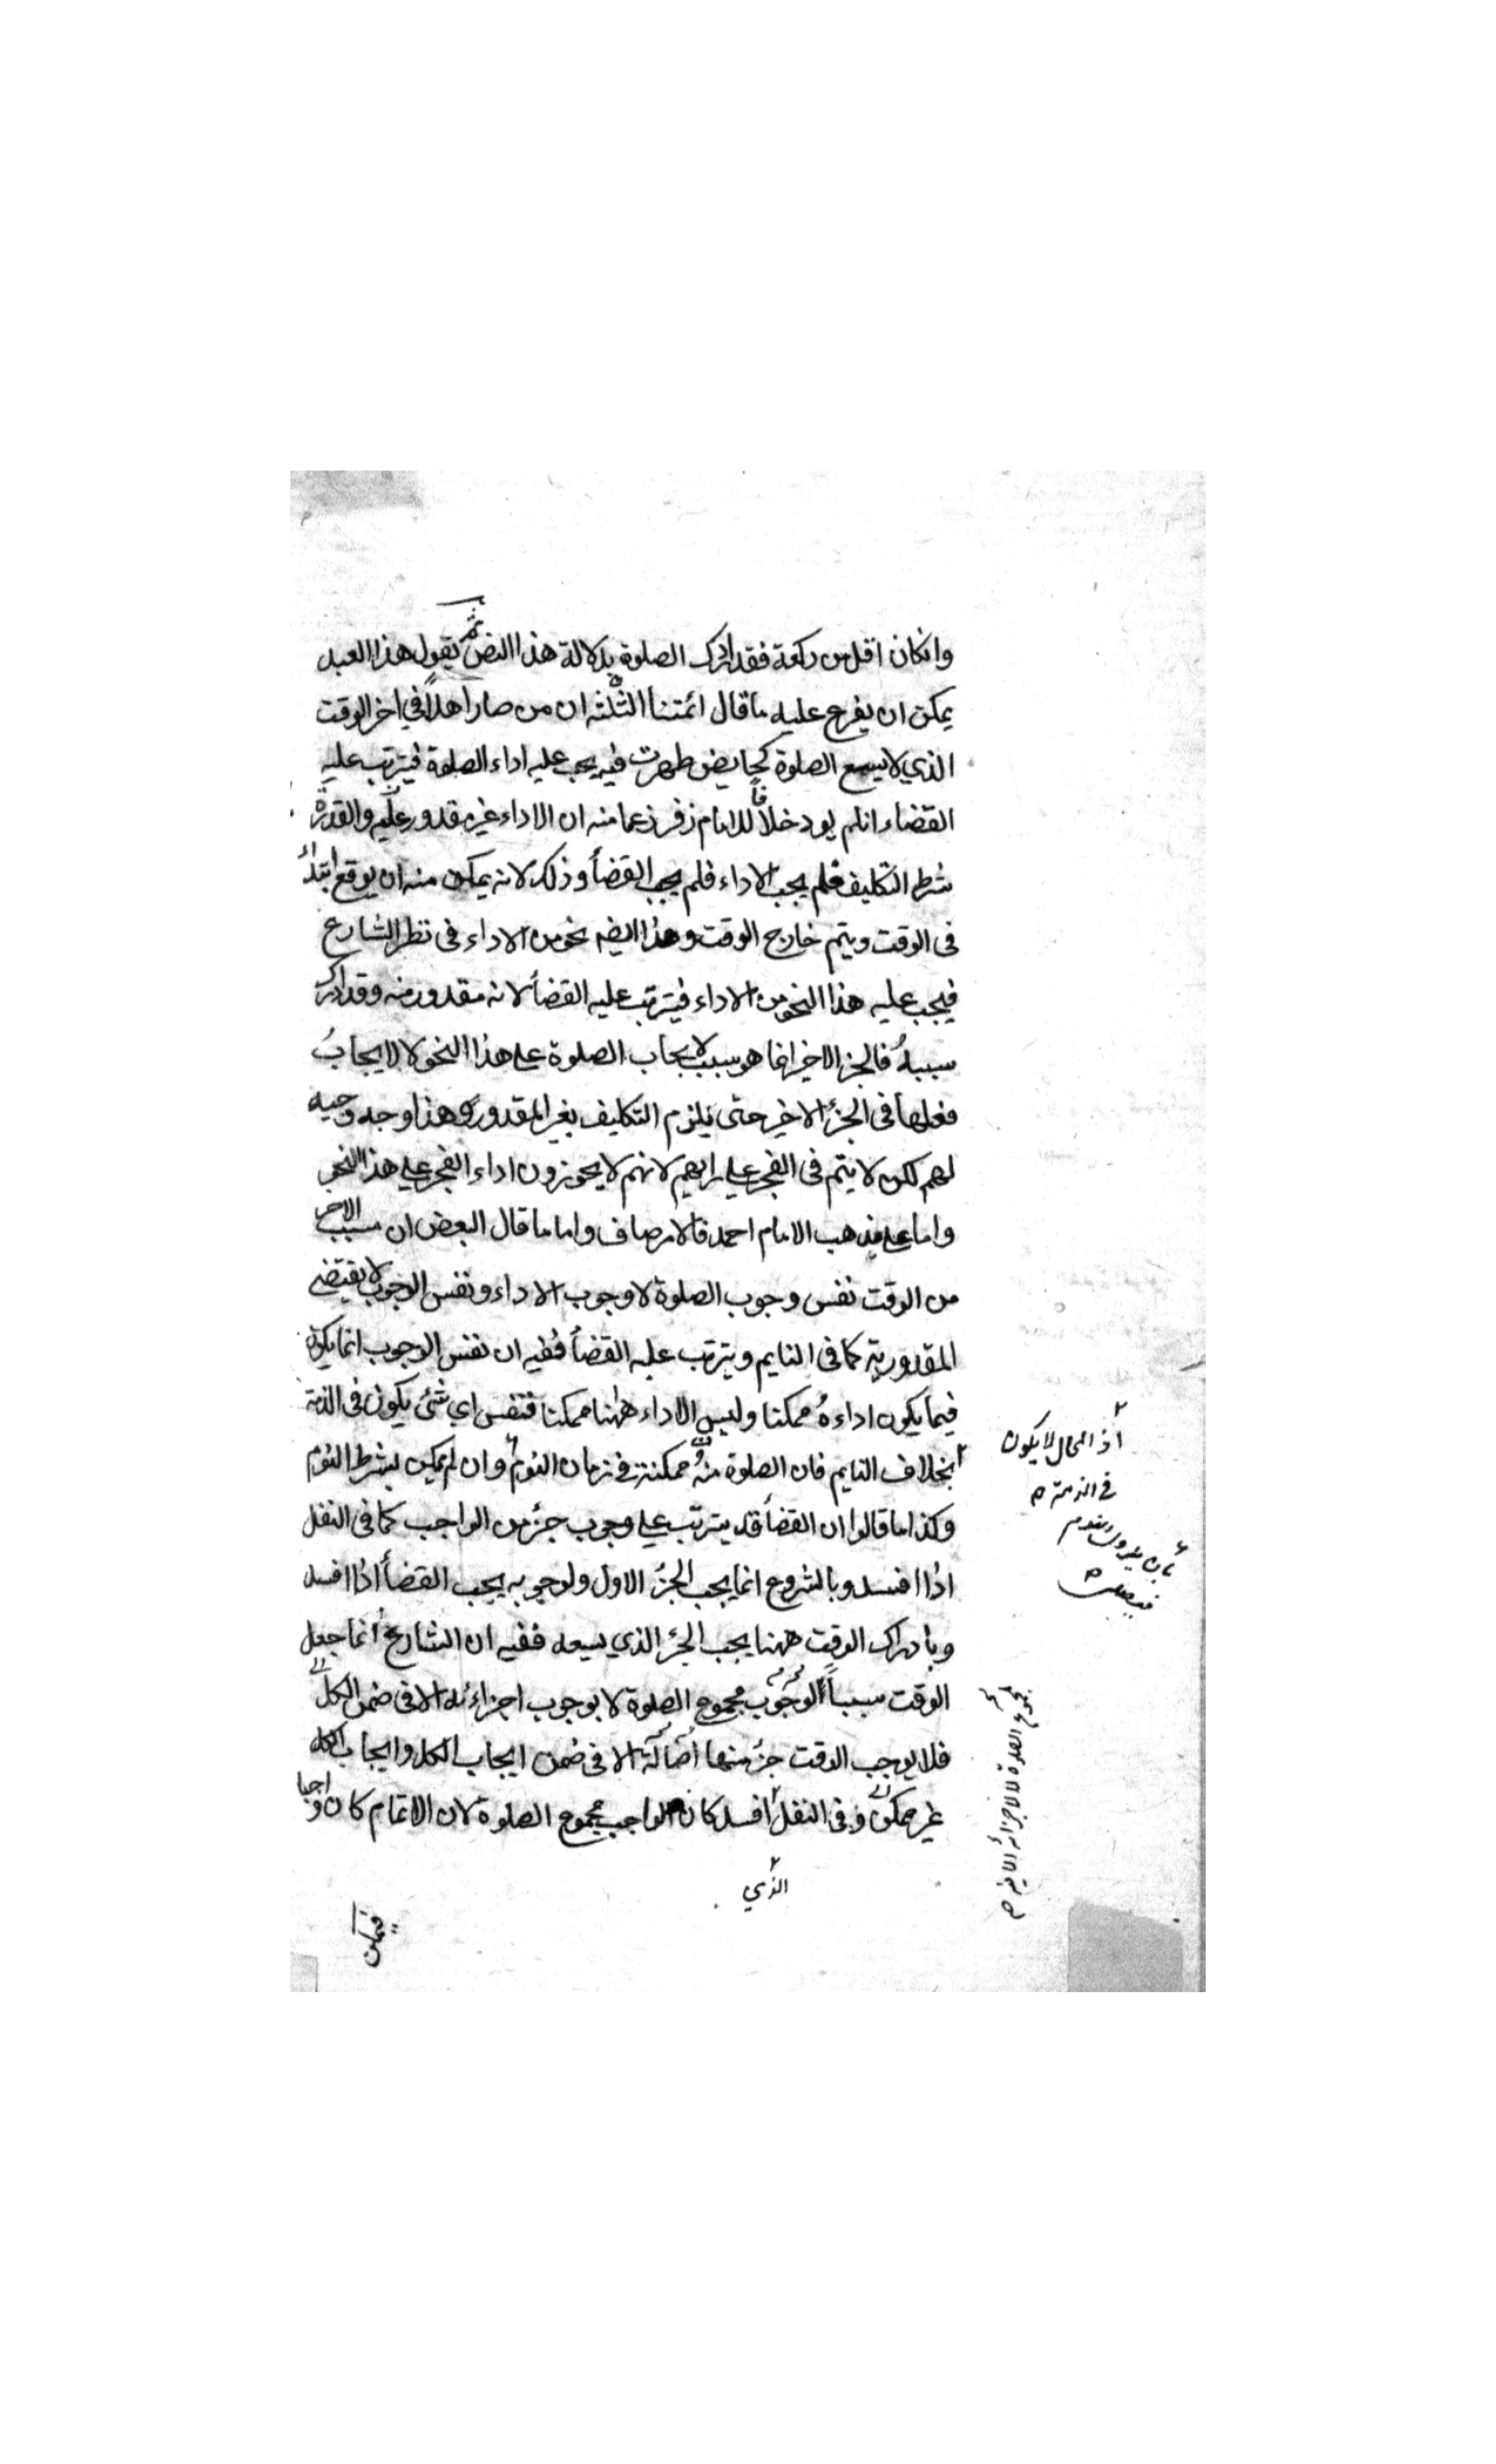 وانكان اقل من ركعة فقد ادرك الصلوة بدلالة هذا النص ثم يقول هذا العبد
يمكن ان يفرع عليه ما قال ائمتنا الثلثه ان من صار اهلا في اخر الوقت
الذي لا يسع الصلوة كحايض طهرت فيه يجب عليه اداء الصلوة فيترتب عليه
القضاء ان لم يود خلافا للامام زفر زعما منه ان الاداء غير مقدور عليه والقدرة
شرط التكليف فلم يجب الاداء فلم يجب القضأ وذلك لانه يمكن منه ان يوقع ابتداء
فى الوقت ويتم خارج الوقت وهذا ايضه نحو من الاداء فى نظر الشارع
فيجب عليه هذا النحو من الاداء فيترتب عليه القضأ لانه مقدور منه وقد ادرك
سببه فالجز الاخير انما هو سبب لايجاب الصلوة على هذا النحو لا لايجاب
فعلها فى الجزء الاخير حتى يلزم التكليف بغير المقدور وهذا وجه وجيه
لهم لكن لا يتم فى الفجر على رايهم لانهم لا يجوزون اداء الفجر على هذا النحو
واما على مذهب الامام احمد فالامر صاف واما ما قال البعض ان سبب الاخر
من الوقت نفس وجوب الصلوة لا وجوب الاداء ونفس الوجوب لا يقتضى
المقدورية كما فى النايم ويترتب عليه القضأ ففيه ان نفس الوجوب انما يكون
فيما يكون اداءه ممكنا وليس الاداء ههنا ممكنا فنفس اي شئ يكون فى الذمة
بخلاف النايم فان الصلوة منه ممكنة فى زمان النوم وان لم يمكن بشرط النوم
وكذا ما قالوا ان القضأ قد يترتب على وجوب جزء من الواجب كما فى النفل
اذا افسد وبالشروع انما يجب الجزء الاول ولوجوبه يجب القضأ اذا افسد
وبادراك الوقت ههنا يجب الجزء الذي يسعه ففيه ان الشارع انما جعل
الوقت سببا لوجوب مجموع الصلوة لا بوجوب اجزاءه الا فى ضمن الكل
فلا يوجب الوقت جزء منها اصالة الا فى ضمن ايجاب الكل وايجاب الكل
غير ممكن وفى النفل افسد كان الواجب مجموع الصلوة لان الاتمام كان واجبا
الذي
اذ المحال لا يكون
فى الذمة
مجموع الصلوة لا لاجزائه